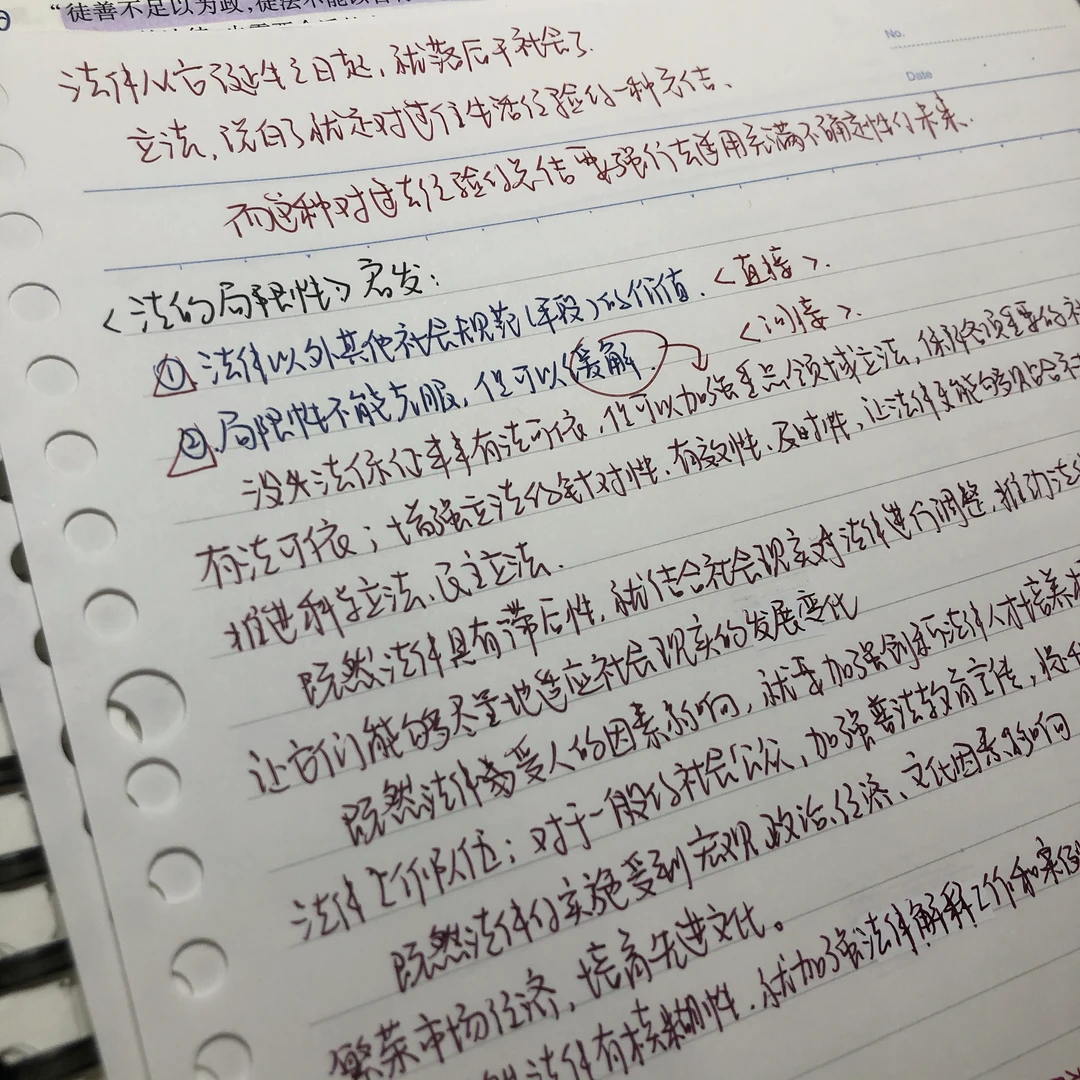 “徒善不足以为政,徒法不能以自
No.
Date
法律从它诞生之日起,就落后于社会了.
立法,说白了就是对过往生活经验的一种总结、
而这种对过去经验的总结要强行去适用充满不确定性的未来.
<法的局限性> 启发:
① 法律以外其他社会规范(手段)的价值. <直接>.
② 局限性不能克服,但可以缓解. <间接>.
没办法保证事事有法可依,但可以加强重点领域立法,保障各项重要的社
有法可依;增强立法的针对性、有效性、及时性,让法律更能够贴合社
推进科学立法、民主立法.
既然法律具有滞后性,就结合社会现实对法律进行调整,推动法律
让它们能够尽量地适应社会现实的发展变化
既然法律易受人的因素影响,就要加强创新法律人才培养
法律工作队伍;对于一般的社会公众,加强普法教育宣传,
既然法律的实施受到宏观政治、经济、文化因素影响
繁荣市场经济,培育先进文化。
法律有模糊性,就加强法律解释工作和案例